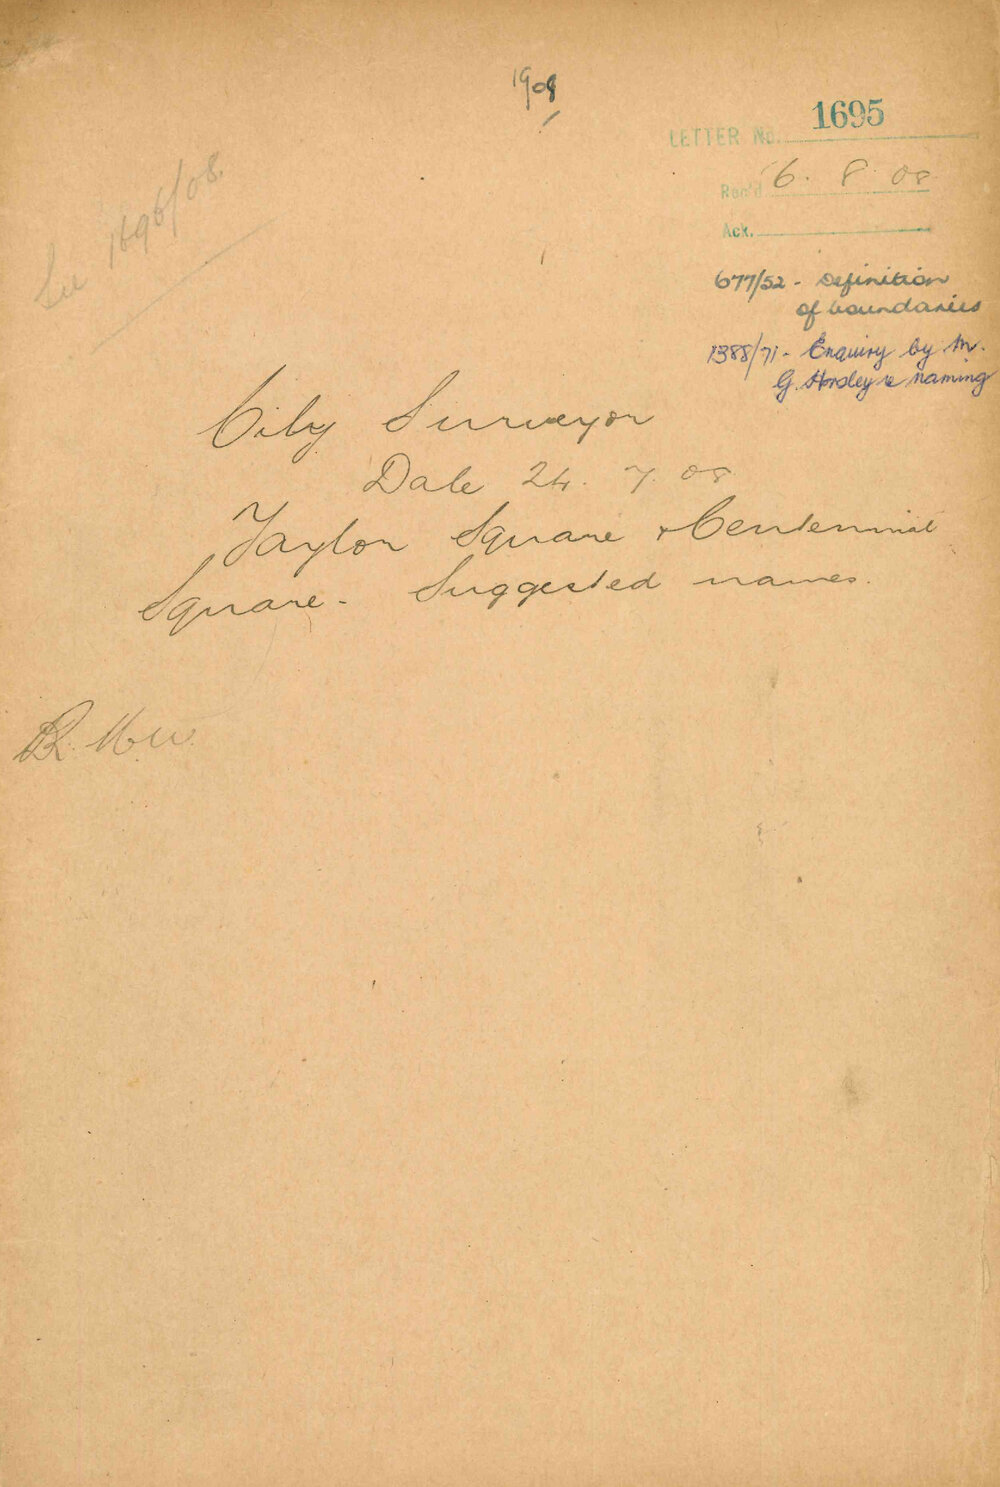 1908
LETTER No. 1695
Rec'd 6. 8. 08
Ack.
See 1696/08.
677/52 - Definition
of boundaries
1388/71 - Enquiry by Mr.
G. Horsley re naming
City Surveyor
Date 24. 7. 08
Taylor Square & Centennial
Square - Suggested names.